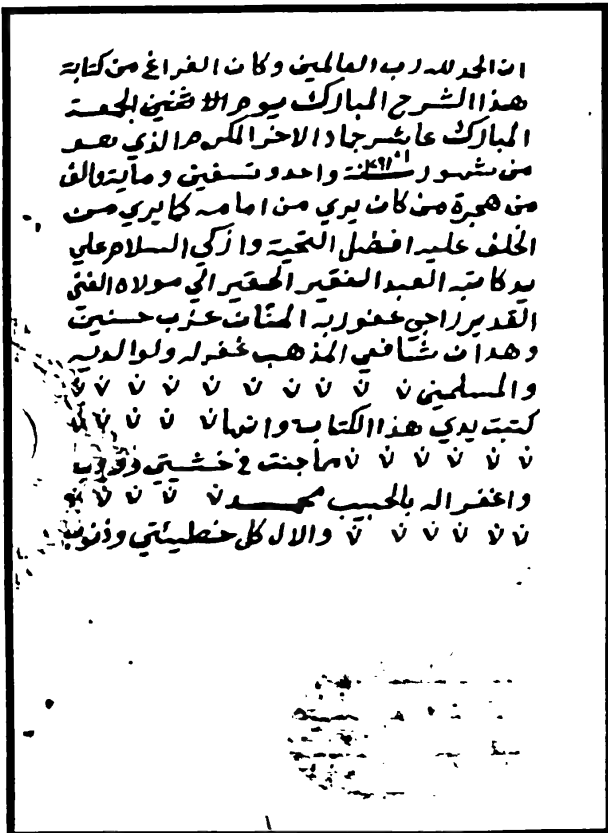 ان الحمد لله رب العالمين وكان الفراغ من كتابة
هذا الشرح المبارك يوم الاثنين الجمعة
المبارك عاشر جماد الاخر المكرم الذي هو
من شهور سنة ١١٩١ واحد وتسعين وماية والف
من هجرة من كان يري من امامه كما يري من
الخلف عليه افضل التحية وازكي السلام علي
يد كاتبه العبد الفقير الحقير الي مولاه الغني
القدير راجي عفو ربه المنان عزب حسنين
وهدان شافعي المذهب غفر له ولوالديه
والمسلمين
كتبت يدي هذا الكتاب وانها
ما جنت في
واغفر اله بالحبيب محمد
والال كل خطيئتي وذنوب